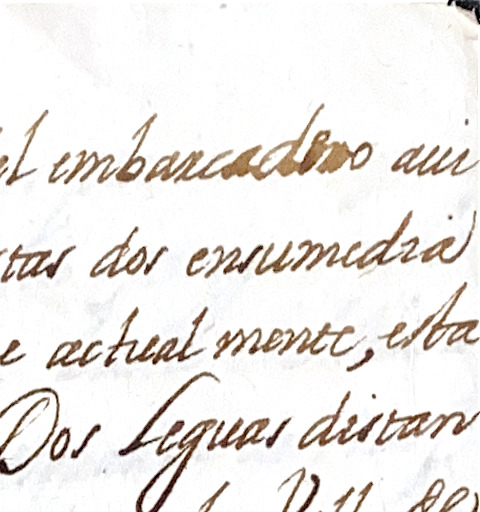 el embarcadero aui
stas dos ensumedia
e actual mente, esta
Dos Leguas distan